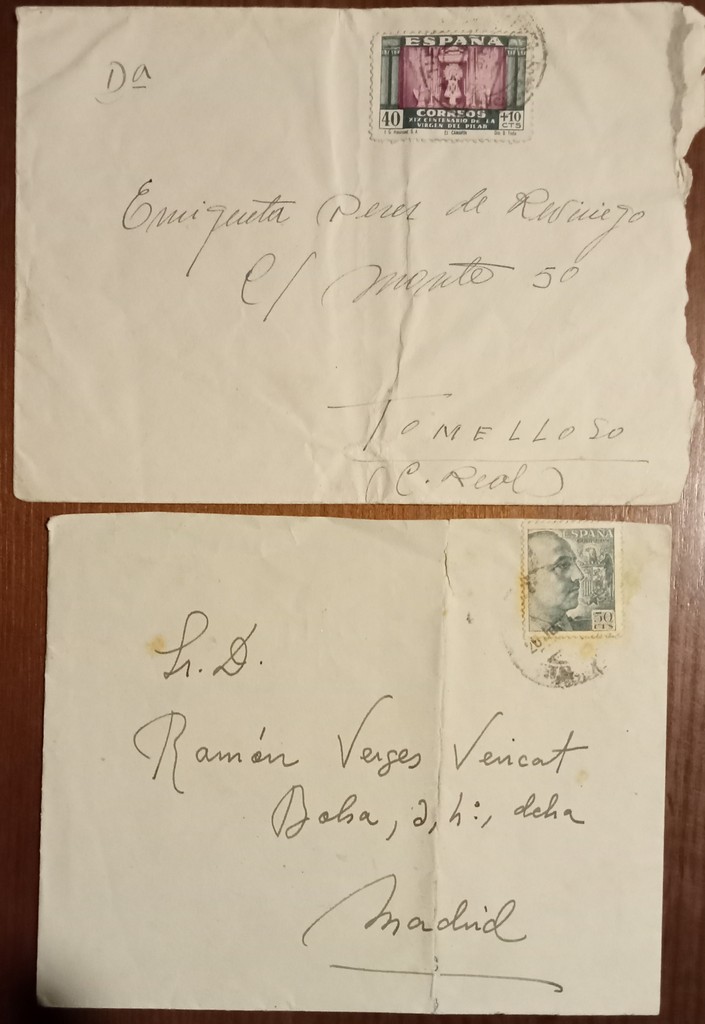 Dª
ESPAÑA
CORREOS
40
+10
CTS
XIX CENTENARIO DE LA
VIRGEN DEL PILAR
Enriqueta Perez de
C/ Monte 50
TOMELLOSO
(C. Real)
ESPAÑA
50
CTS
Sr. D.
Ramón Verges Vericat
Bolsa, 2, 4º, dcha
Madrid